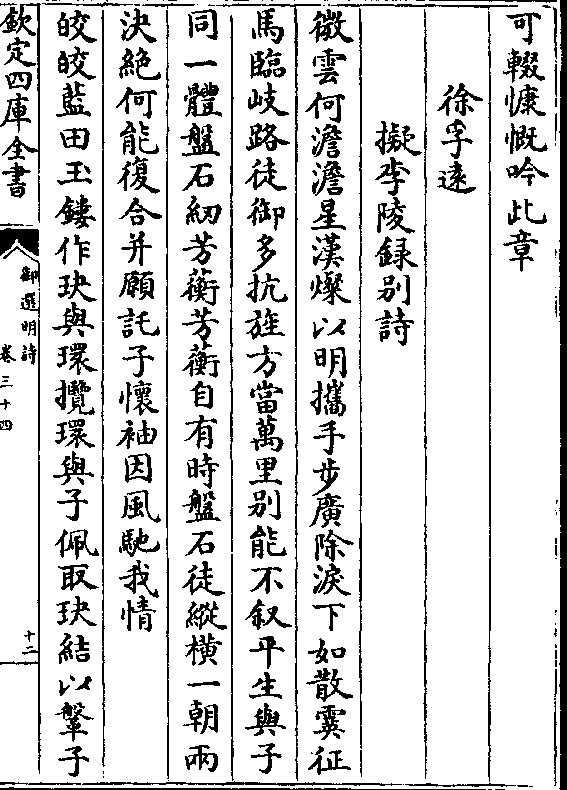 可輟慷慨吟此章
徐孚遠
擬李陵録别詩
微雲何澹澹星漢燦以明攜手步廣除淚下如散霙征
馬臨岐路徒御多抗旌方當萬里别能不叙平生與子
同一體盤石紉芳蘅芳蘅自有時盤石徒縱横一朝兩
決絶何能復合并願託子懷袖因風馳我情
皎皎藍田玉鏤作玦與環攬環與子佩取玦結以鞶子
欽定四庫全書
御選明詩
卷三十四
十二